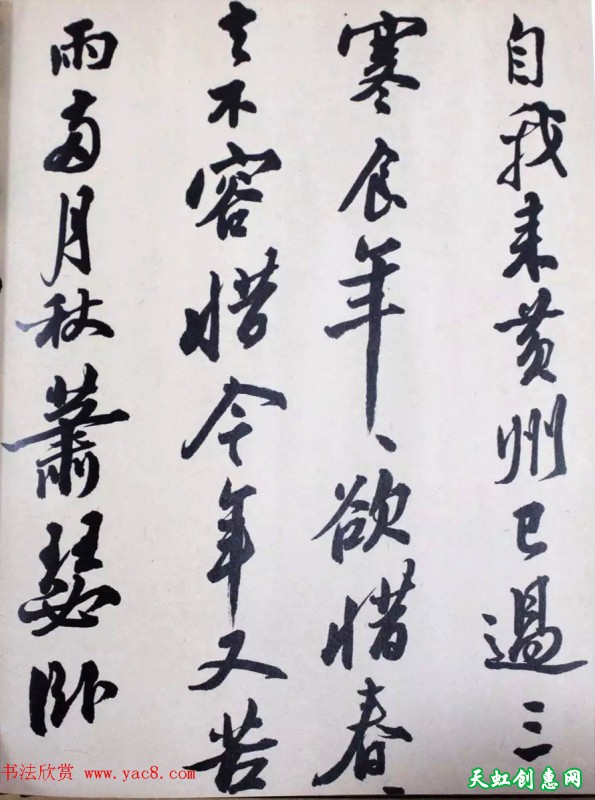 自我来黄州已過三
寒食年、欲惜春、
去不容惜今年又苦
雨兩月秋蕭瑟卧
书法欣赏 www.yac8.com
天虹创惠网